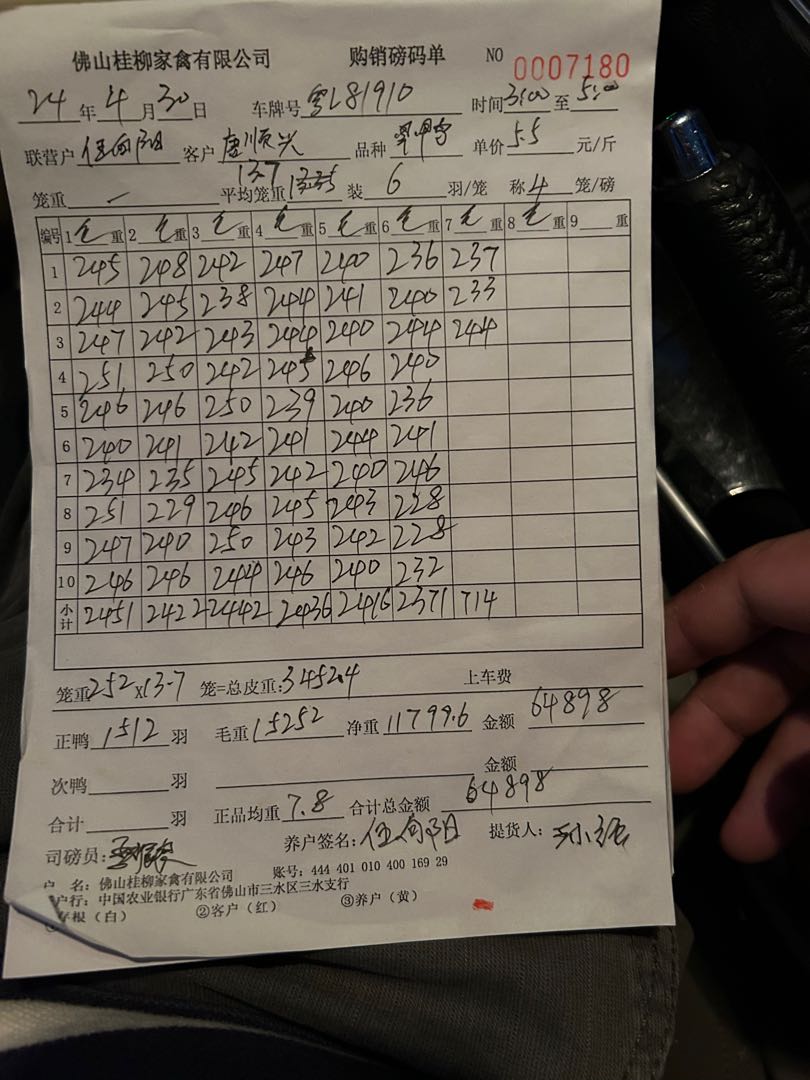 佛山桂柳家禽有限公司 购销磅码单 NO 0007180
24年4月30日 车牌号 粤L81910 时间3:00至5:00
联营户 伍向阳 客户 唐顺兴 品种 单价5.5元/斤
13.7
笼重 — 平均笼重 装6羽/笼 称4笼/磅
编号 1毛重 2毛重 3毛重 4毛重 5毛重 6毛重 7毛重 8毛重 9重
1 245 248 242 247 240 236 237
2 244 245 238 244 241 240 233
3 247 242 243 244 240 244 244
4 251 250 242 245 246 240
5 246 246 250 239 240 236
6 240 241 242 241 244 241
7 234 235 245 242 240 246
8 251 229 246 245 243 228
9 247 240 250 243 242 228
10 246 246 244 246 240 232
小计 2451 2422 2442 2436 2416 2371 714
笼重252×13.7 笼=总皮重:3452.4 上车费
正鸭1512羽 毛重15252 净重11799.6 金额64898
次鸭 羽 金额
合计 羽 正品均重7.8 合计总金额64898
养户签名:伍向阳 提货人:
司磅员:
户 名:佛山桂柳家禽有限公司 账号:444 401 010 400 169 29
户行:中国农业银行广东省佛山市三水区三水支行
存根(白) ②客户(红) ③养户(黄)